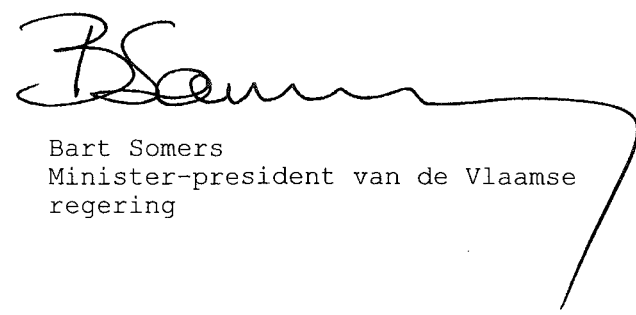 BSomers
Bart Somers
Minister-president van de Vlaamse
regering